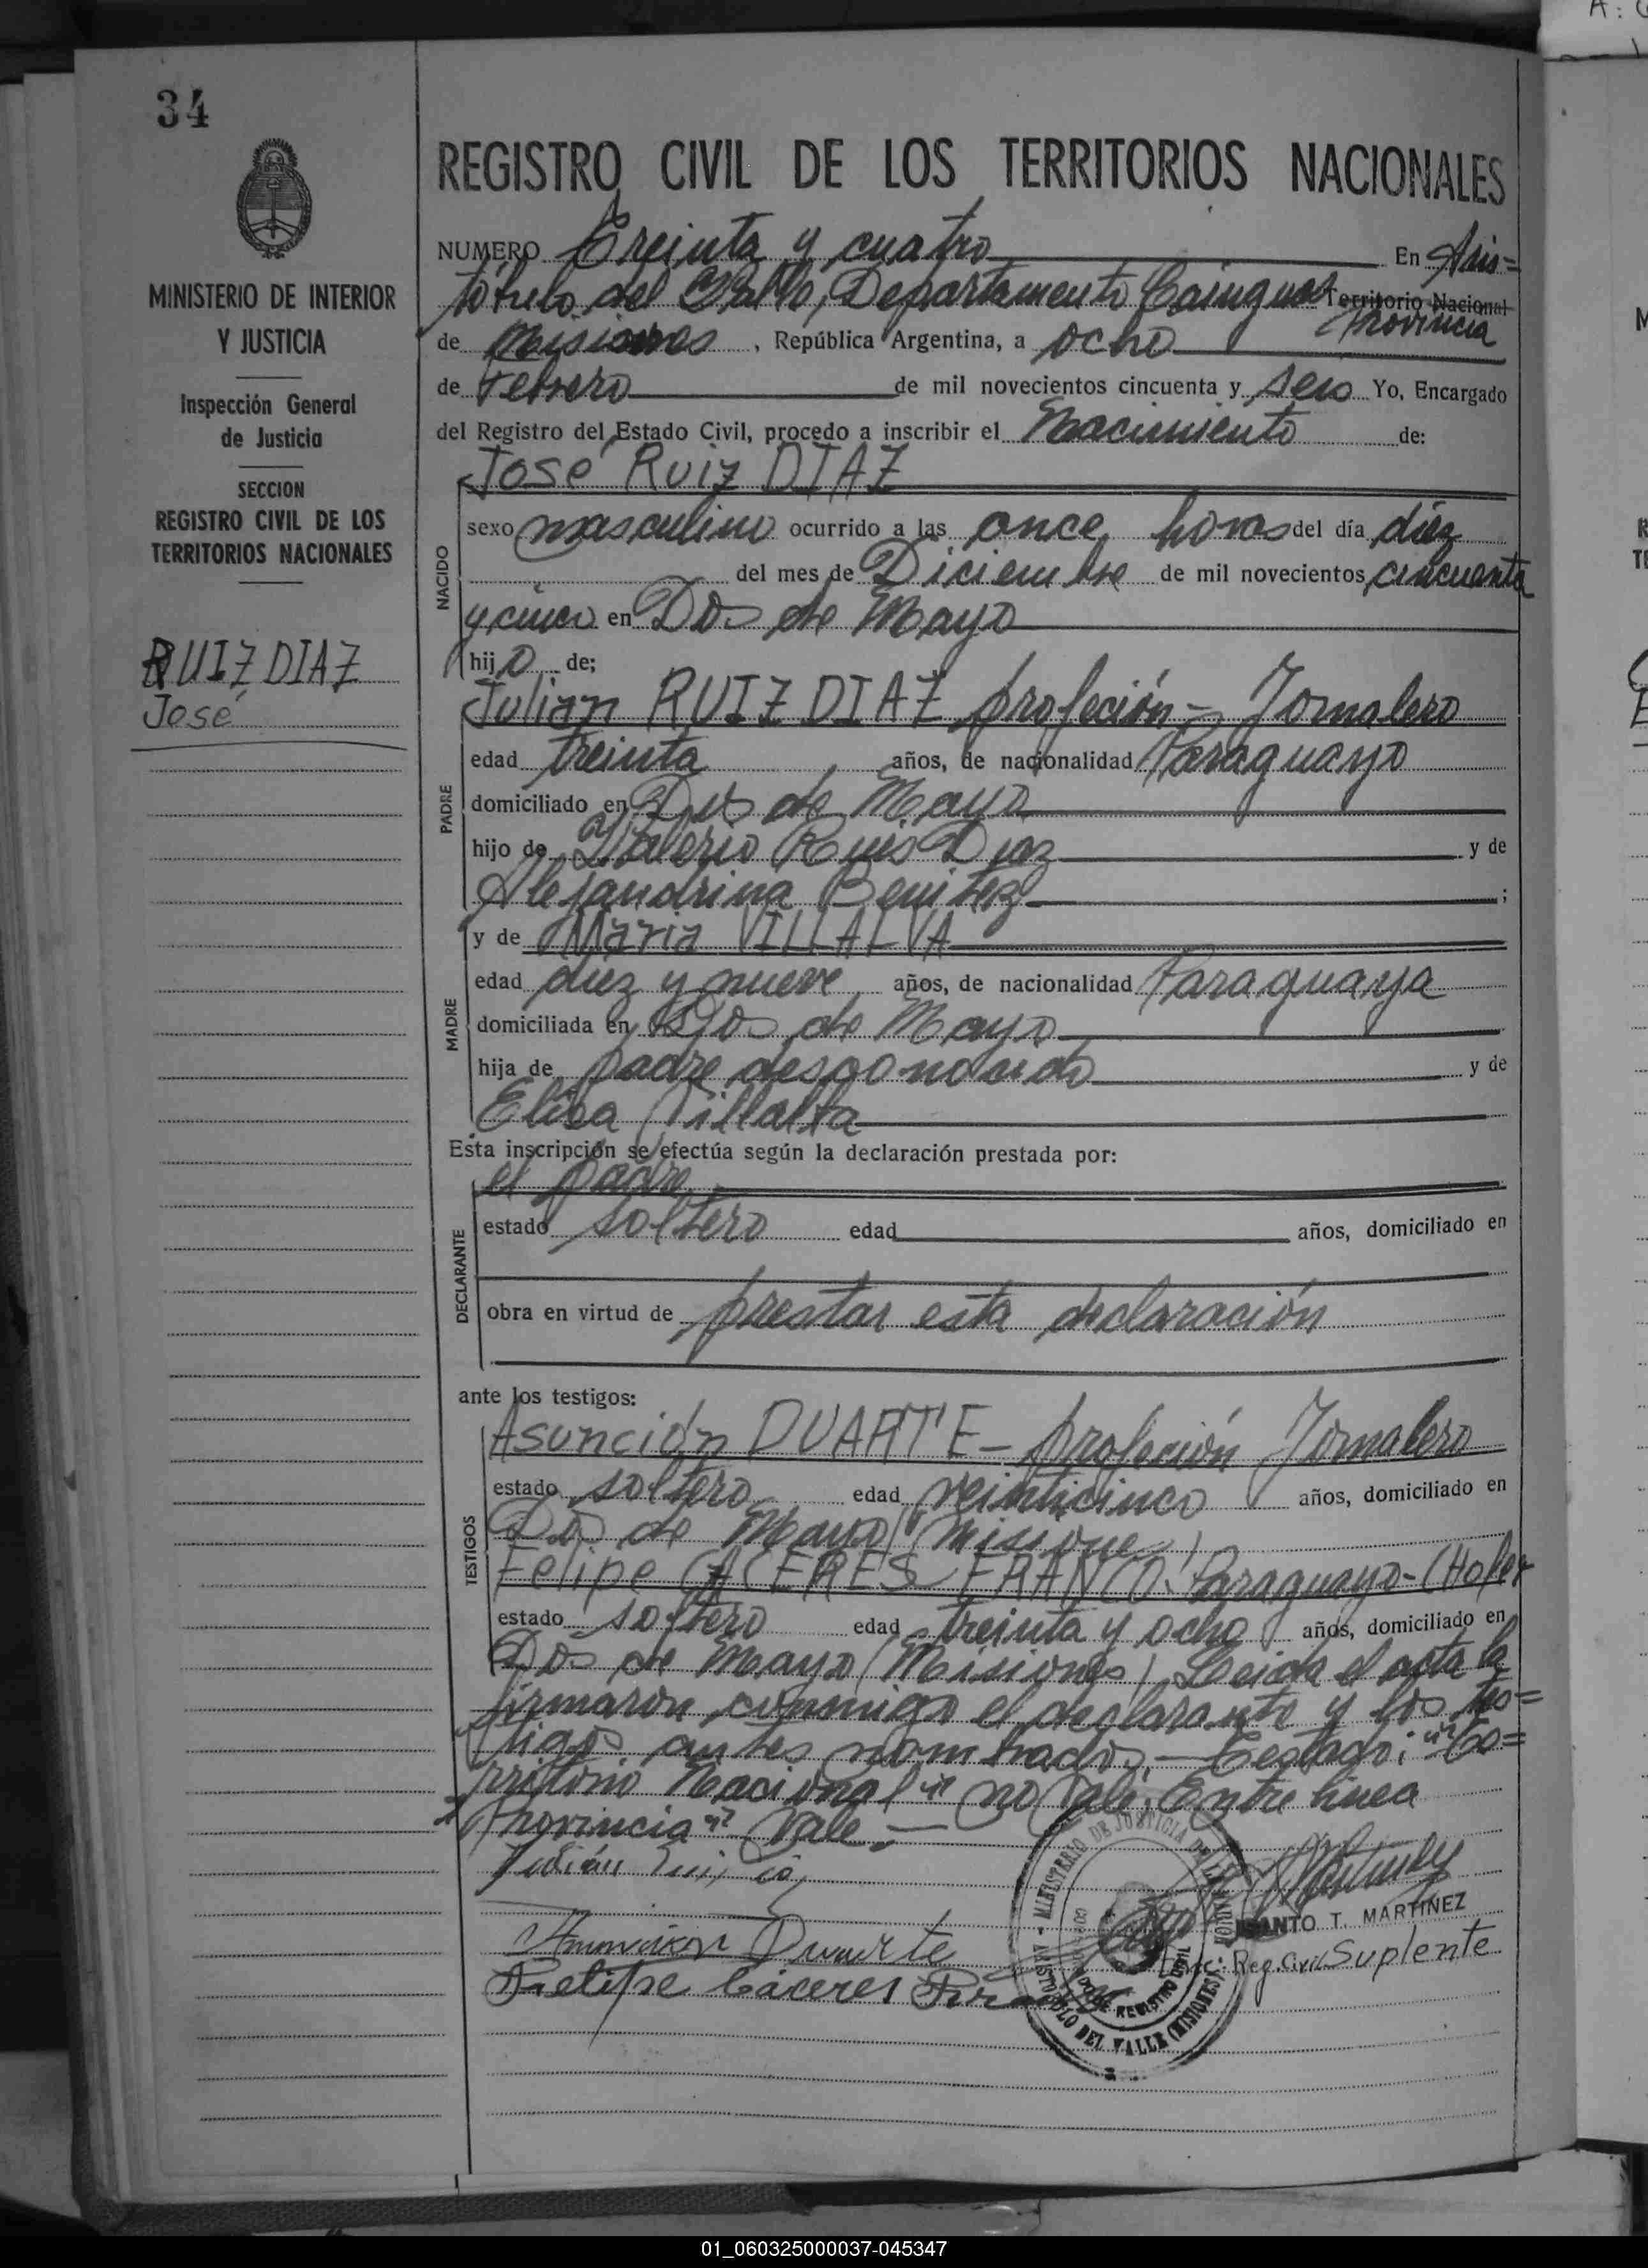 34
MINISTERIO DE INTERIOR
Y JUSTICIA
Inspección General
de Justicia
SECCION
REGISTRO CIVIL DE LOS
TERRITORIOS NACIONALES
RUIZ DIAZ
José
REGISTRO CIVIL DE LOS TERRITORIOS NACIONALES
NUMERO Treinta y cuatro En Aris=
tóbulo del Valle, Departamento Cainguas Territorio Nacional
Provincia
de Misiones, República Argentina, a ocho
de Febrero de mil novecientos cincuenta y seis Yo, Encargado
del Registro del Estado Civil, procedo a inscribir el Nacimiento de:
José Ruiz DIAZ
NACIDO
sexo masculino ocurrido a las once horas del día diez
del mes de Diciembre de mil novecientos cincuenta
y cinco en Dos de Mayo
hijo de;
Julian RUIZ DIAZ profeción= Jornalero
PADRE
edad treinta años, de nacionalidad Paraguayo
domiciliado en Dos de Mayo
hijo de Valerio Ruis Diaz y de
Alejandrina Benitez ;
y de Maria VILLALVA
MADRE
edad diez y nueve años, de nacionalidad Paraguaya
domiciliada en Dos de Mayo
hija de padre desconocido y de
Elisa Villalta
Esta inscripción se efectúa según la declaración prestada por:
el padre
DECLARANTE
estado soltero edad años, domiciliado en
obra en virtud de prestar esta declaración
ante los testigos:
TESTIGOS
Asunción DUARTE - profeción Jornalero
estado soltero edad veinticinco años, domiciliado en
Dos de Mayo (Misiones)
Felipe CACERES FRANCO. Paraguayo-(Hofer
estado soltero edad treinta y ocho años, domiciliado en
Dos de Mayo (Misiones) Leida el acta la
firmaron conmigo el declarante y los tes=
tigos antes nombrados.- Testado: "Te=
rritorio Nacional" no vale. Entre linea
"Provincia" Vale.-
Julián
Asunción Duarte
Felipe Cáceres
SANTO T. MARTINEZ
Enc. Reg. Civil Suplente
MINISTERIO DE JUSTICIA DE LA NACION
REGISTRO CIVIL
ARISTOBULO DEL VALLE (MISIONES)
01_060325000037-045347